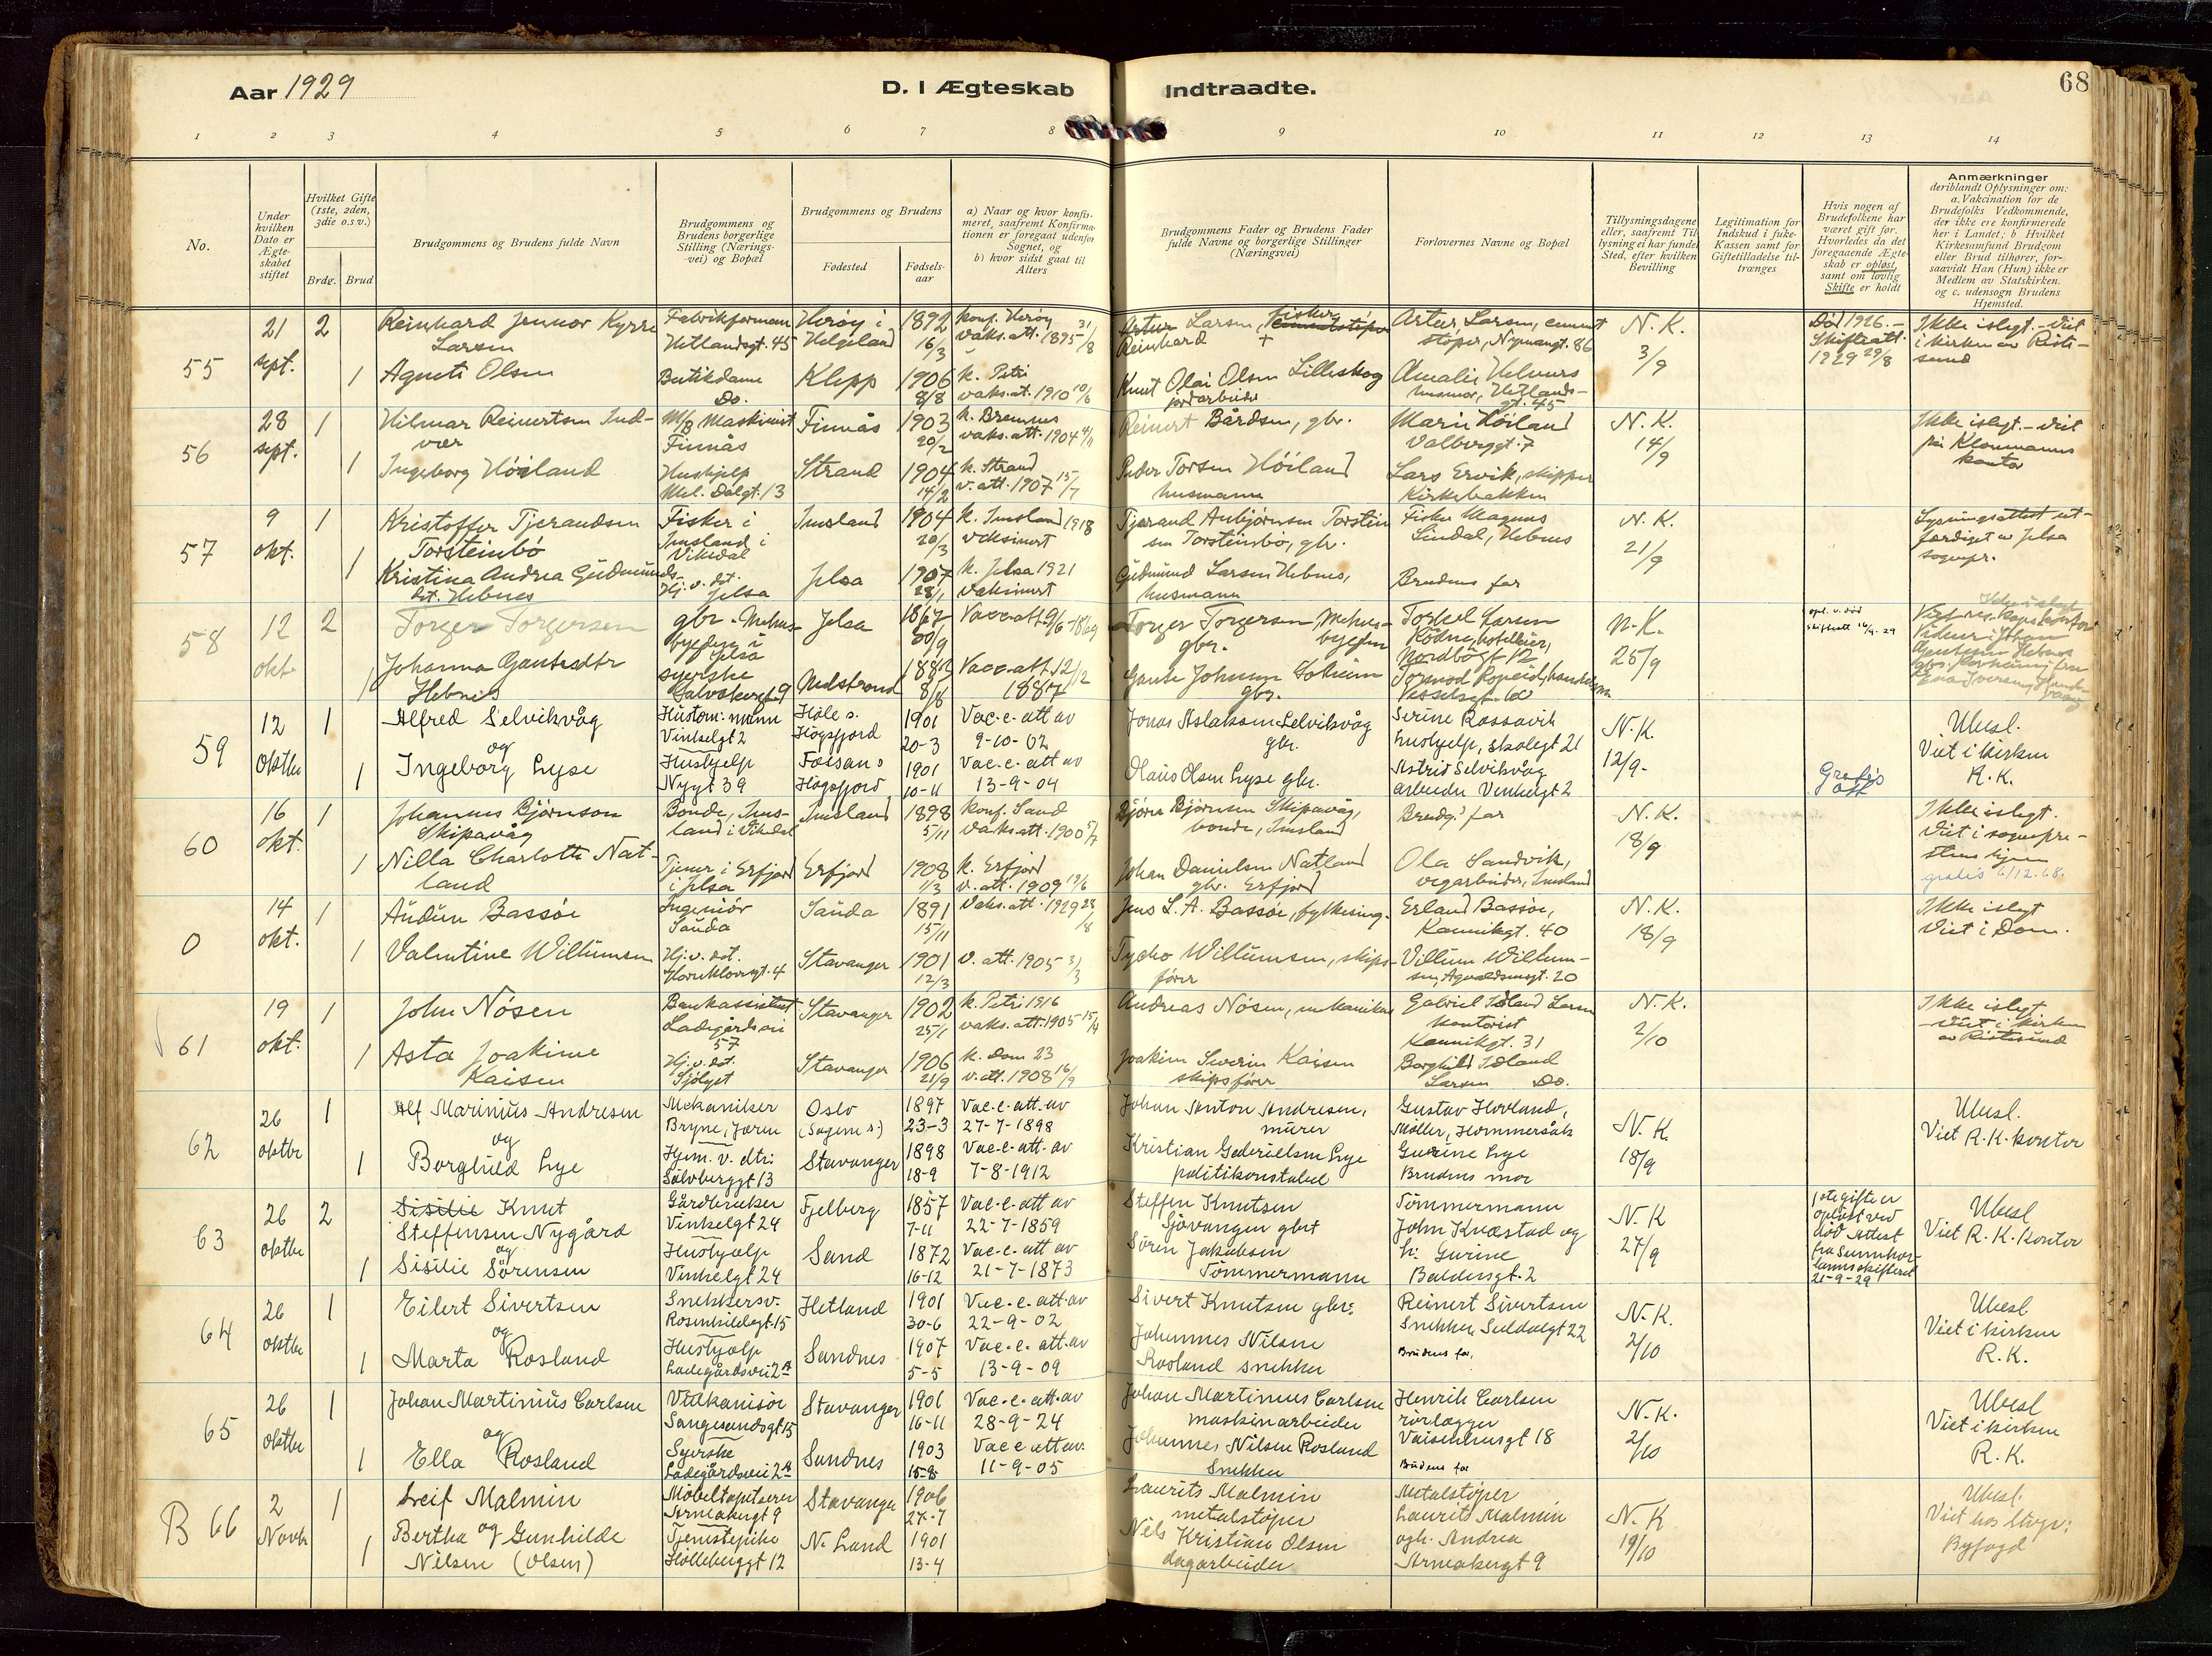 Aar 1929
D. I Ægteskab Indtraadte.
68
1 2 3 4 5 6 7 8 9 10 11 12 13 14
No.
Under hvilken Dato er Ægte-skabet stiftet
Hvilket Gifte (1ste, 2den, 3die o.s.v.)
Brdg. Brud
Brudgommens og Brudens fulde Navn
Brudgommens og Brudens borgerlige Stilling (Nærings-vei) og Bopæl
Brudgommens og Brudens
Fødested
Fødsels-aar
a) Naar og hvor konfir-meret, saafremt Konfirma-tionen er foregaat udenfor Sognet, og
b) hvor sidst gaat til Alters
Brudgommens Fader og Brudens Fader fulde Navne og borgerlige Stillinger (Næringsvei)
Forlovernes Navne og Bopæl
Tillysningsdagene eller, saafremt Til-lysning ei har fundet Sted, efter hvilken Bevilling
Legitimation for Indskud i fuke-Kassen samt for Giftetilladelse til-trænges
Hvis nogen af Brudefolkene har været gift før. Hvorledes da det foregaaende Ægte-skab er opløst, samt om lovlig Skifte er holdt
Anmærkninger
deriblandt Oplysninger om: a. Vakcination for de Brudefolks Vedkommende, der ikke ere konfirmerede her i Landet; b Hvilket Kirkesamfund Brudgom eller Brud tilhører, for-saavidt Han (Hun) ikke er Medlem av Statskirken. og c. udensogn Brudens Hjemsted.
55
21 sept.
2
Reinhard Kyrre Larsen
Hetlandsgt. 45
Herøy i Helgeland
1892 16/3
konf. Herøy vaks. att. 1895 31/8
Artur Larsen, fisker cementstøper
Reinhard +
Artur Larsen, cement støper, Nymansgt. 86
N. K. 3/9
Død 1926. - Skifteatt. 1929 29/8
Ikke islegt. - viet i kirken av Risti-sund
1
Agneti Olsen
Butikdame Do.
Klepp
1906 8/8
k. Petri vaks. at. 1910 10/6
Knut Olai Olsen Lilleskog jordarbeider
Amalie husmor, Hetlands-gt. 45
56
28 sept.
1
Hilmar Reinertsen Ind-vær
M/B Maskinist Finnås
Finnås
1903 20/2
k. Bremnes vaks. att. 1904 4/11
Reinert Bårdsen, gbr.
Marie Höiland Valberggt. 7
N. K. 14/9
Ikke islegt. - viet på Klommanns kontor
1
Ingeborg Höiland
Hushjelp Mel. Dalgt. 13
Strand
1904 14/2
k. Strand v. att. 1907 15/7
Peder Torsen Höiland husmann
Lars Ervik, skipper Kirkebakken
57
9 okt.
1
Kristoffer Tjerandsen Torsteinbö
Fisker i Imsland i Vikedal
Imsland
1904 20/3
k. Imsland 1918 vaksinert
Tjerand Anbjørnsen Torstein sen Torsteinbø, gbr.
Fisker Magnus Lindal, Hebnes
N. K. 21/9
Lysningsattest ut-færdiget av Jelsa sognepr.
1
Kristina Andrea Gudmunds-dt. Hebnes
Hj. v. det. Jelsa
Jelsa
1907 28/1
k. Jelsa 1921 vaksinert
Gudmund Larsen Hebnes, husmann
Brudens far
58
12 okt
2
Torger Torgersen
gbr. Mehus-bygden i Jelsa
Jelsa
1867 20/9
Vacc.att. 9/6 - 1869
Torger Torgersen Mehus-bygden gbr.
Torkel Larsen Rödne, hotelleier, Nordbögt 12
N. K. 25/9
opl. v. död skifteatt 14/9. 29
1
Johanna Gautesdtr Hebnes
syerske
Nedstrand
1882 8/8
Vacc. att. 12/12 1887
Gaute Johnsen gbr.
Tormod Ropeid, handelsm
59
12 oktbr
1
Alfred Selvikvåg
og
Hustøm. mann Vinkelgt 2
Høle s. Høgsfjord
1901 20-3
Vac. e. att av 9-10-02
Jonas Aslaksen Selvikvåg gbr.
Serine Rossavik hushjelp, skolegt 21
N. K. 12/9-
Ubesl. Viet i kirken R. K.
1
Ingeborg Lyse
Hushjelp Nygt 39
Forsan s Høgsfjord
1901 10-11
Vac. e. att av 13-9-04
Olaus Olsen Lyse gbr.
Astrid Selvikvåg arbeider Vinkelgt 2
Gratis att
60
16 okt.
1
Johannes Bjørnson Skipavåg
Bonde, Ims-land i Vikedal
Imsland
1898 5/11
konf. Sand vaks att. 1900 5/7
Bjørn Bjørnsen Skipavåg, bonde, Imsland
Brudg.s far
N. K. 18/9
Ikke islegt. Viet i sognepre-stens hjem gratis 6/12.68.
1
Nilla Charlotte Nat-land
Tjener i Erfjord i Jelsa
Erfjord
1908 1/3
k. Erfjord v. att. 1909 19/6
Johan Danielsen Natland gbr. Erfjord
Ola Sandvik, vegarbeider, Imsland
0
14 okt.
1
Audun Bassöe
Ingeniör Sauda
Sauda
1891 15/11
Vaks. att. 1929 28/8
Jens L. A. Bassöe, fylkesing.
Erland Bassöe, Kannikgt. 40
N. K. 18/9
Ikke islegt Viet i Dom.
1
Valentine Willumsen
Hj. v. det. Horniklovesgt. 4
Stavanger
1901 12/3
v. att. 1905 3/3
Tycho Willumsen, skips-fører
Villum Willum-sen, Agvaldsensgt. 20
61
19 okt.
1
John Nösen
Bankassistent Ladegårdsvei 57
Stavanger
1902 25/1
k. Petri 1916 vaks. att. 1905 15/4
Andreas Nösen, mekaniker
Gabriel Idland Larsen kontorist Kannikgt. 31
N. K. 2/10
Ikke islegt. - viet i kirken av Ristesund
1
Asta Joakime Kaisen
Hj. v. det. Sjölyst
Stavanger
1906 21/9
k. Dom 23 v. att. 1908 16/9
Joakim Severin Kaisen skipsfører
Borghild Idland Larsen Do.
62
26 oktbr
1
Alf Marinius Andresen
og
Mekaniker Bryne, Jæren
Oslo (Sagene s.)
1897 23-3
Vac. e. att. av 27-7-1898
Johan Anton Andresen, murer
Gustav Hovland, Møller, Hommersåk
N. K. 18/9
Ubesl. Viet R. K. kontor
1
Borghild Lye
Hjem. v. dtr: Sølvberggt 13
Stavanger
1898 18-9
Vac. e. att. av 7-8-1912
Kristian Gabrielsen Lye politikonstabel
Gurine Lye Brudens mor
63
26 oktbr
2
Sisilie Knut Steffensen Nygård
og
Gårdbruker Vinkelgt 24
Fjelberg
1857 7-11
Vac. e. att av 22-7-1859
Steffen Knutsen Sjövangen gbr
Tömmermann John Knæstad og
N. K 27/9
1ste gifte er opløst ved død Attest fra Sunnhor-lannskifterett 21-9-29
Ubesl Viet R. K. kontor
1
Sisilie Sörensen
Hushjælp Vinkelgt 24
Sand
1872 16-12
Vac. e. att av 21-7-1873
Sören Jakobsen Tømmermann
h: Gurine Baldersgt. 2
64
26 oktbr
1
Eilert Sivertsen
og
Snekkersv. Rosenkildegt. 15
Hetland
1901 30-6
Vac. e. att. av 22-9-02
Sivert Knutsen gbr:
Reinert Sivertsen Snekker Suldalgt 22
N. K. 2/10
Ubesl. Viet i kirken R. K.
1
Marta Rosland
Hushjælp Ladegårdsvei 2A
Sandnes
1907 5-5
Vac. e. att. av 13-9-09
Johannes Nilsen Rosland snekker
Brudens far
65
26 oktbr
1
Johan Martinius Carlsen
og
Vulkanisör Sangesandsgt 15
Stavanger
1901 16-11
Vac. e. att. av 28-9-24
Johan Martinus Carlsen maskinarbeider
Henrik Carlsen rørlægger Vaisenhusgt 18
N. K. 2/10
Ubesl Viet i kirken R. K.
1
Ella Rosland
Syerske Ladegårdsvei 2A
Sandnes
1903 15-8
Vac e att av. 11-9-05
Johannes Nilsen Rosland Snekker
Brudens far
B 66
2 Novbr
1
Leif Malmin
og
Møbeltapetserer Arneabergt 9
Stavanger
1906 27-7
Laurits Malmin metalstøper
Metalstøper Laurits Malmin
N. K 19/10
Ubesl. Viet hos Stvgr: Byfogd
1
Bertha Gunhilde Nilsen (Olsen)
Tjenestepike Holleberggt 12
N. Land
1901 13-4
Nils Kristian Olsen dagarbeider
ogh. Andrea Arneabergt 9